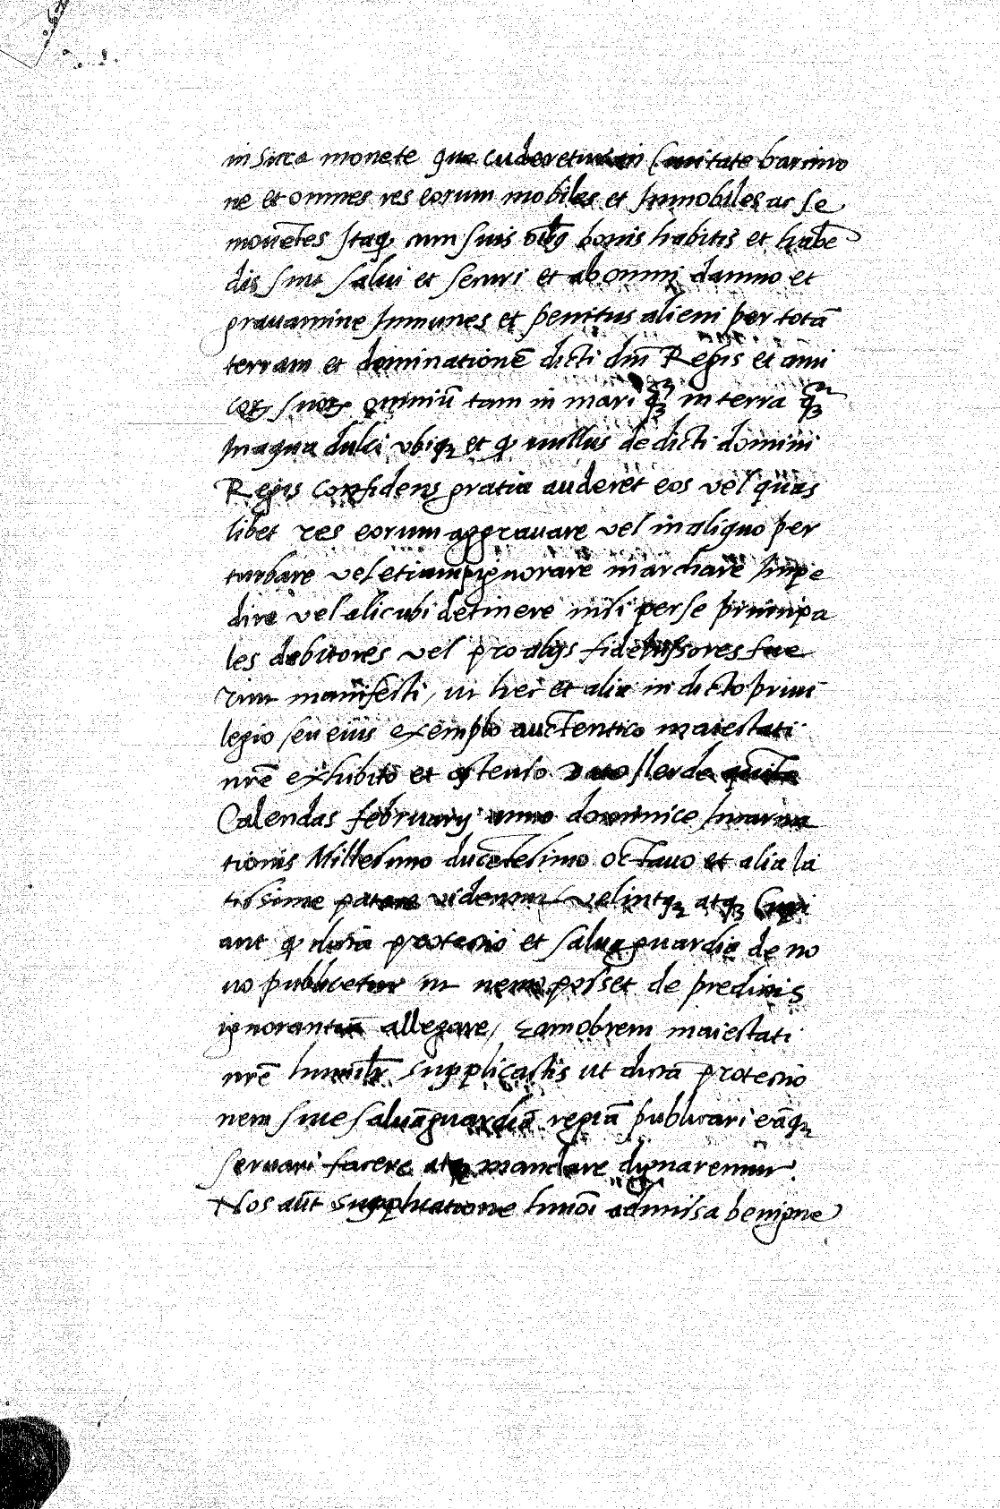 in sicca monete que cuderetur in Civitate barcino
ne et omnes res eorum mobiles et Inmobiles ac se
mouētes Itaq cum suis oībꝫ bonis habitis et habē
dis sint salui et securi et ab omni damno et
grauamine Inmunes et penitus alieni per totā
terram et dominationē dicti dñi Regis et ami
coꝝ suoꝝ omniū tam in mari qꝫ in terra qꝫ
In aqua dulci vbiqꝫ et ꝙ nullus de dicti domini
Regis confidens gratia auderet eos vel quas
libet res eorum aggrauare vel in aliquo per
turbare vel etiam pignorare marchare Impe
dire vel alicubi detinere nisi per se principa
les debitores vel pro alijs fideiussores fue
rint manifesti, ut hec et alia in dicto priui
legio seu eius exemplo auctentico maiestati
nrē exhibito et ostenso Dato Ilerde quinto
Calendas february anno dominice Incarna
tionis Millesimo ducētesimo octauo et alia la
tissime patere videntur velintqꝫ atqꝫ Cupi
ant ꝙ dictā protectio et saluaguardia de no
uo publicetur ut nemo posset de predictis
ignorantiā allegare, Eamobrem maiestati
nrē humilr̄ supplicastis ut dictā protectio
nem siue saluāguardiā regiā publicari eāqꝫ
seruari facere atqꝫ mandare dignaremur.
Nos aūt supplicatione hmōi admissa benigne